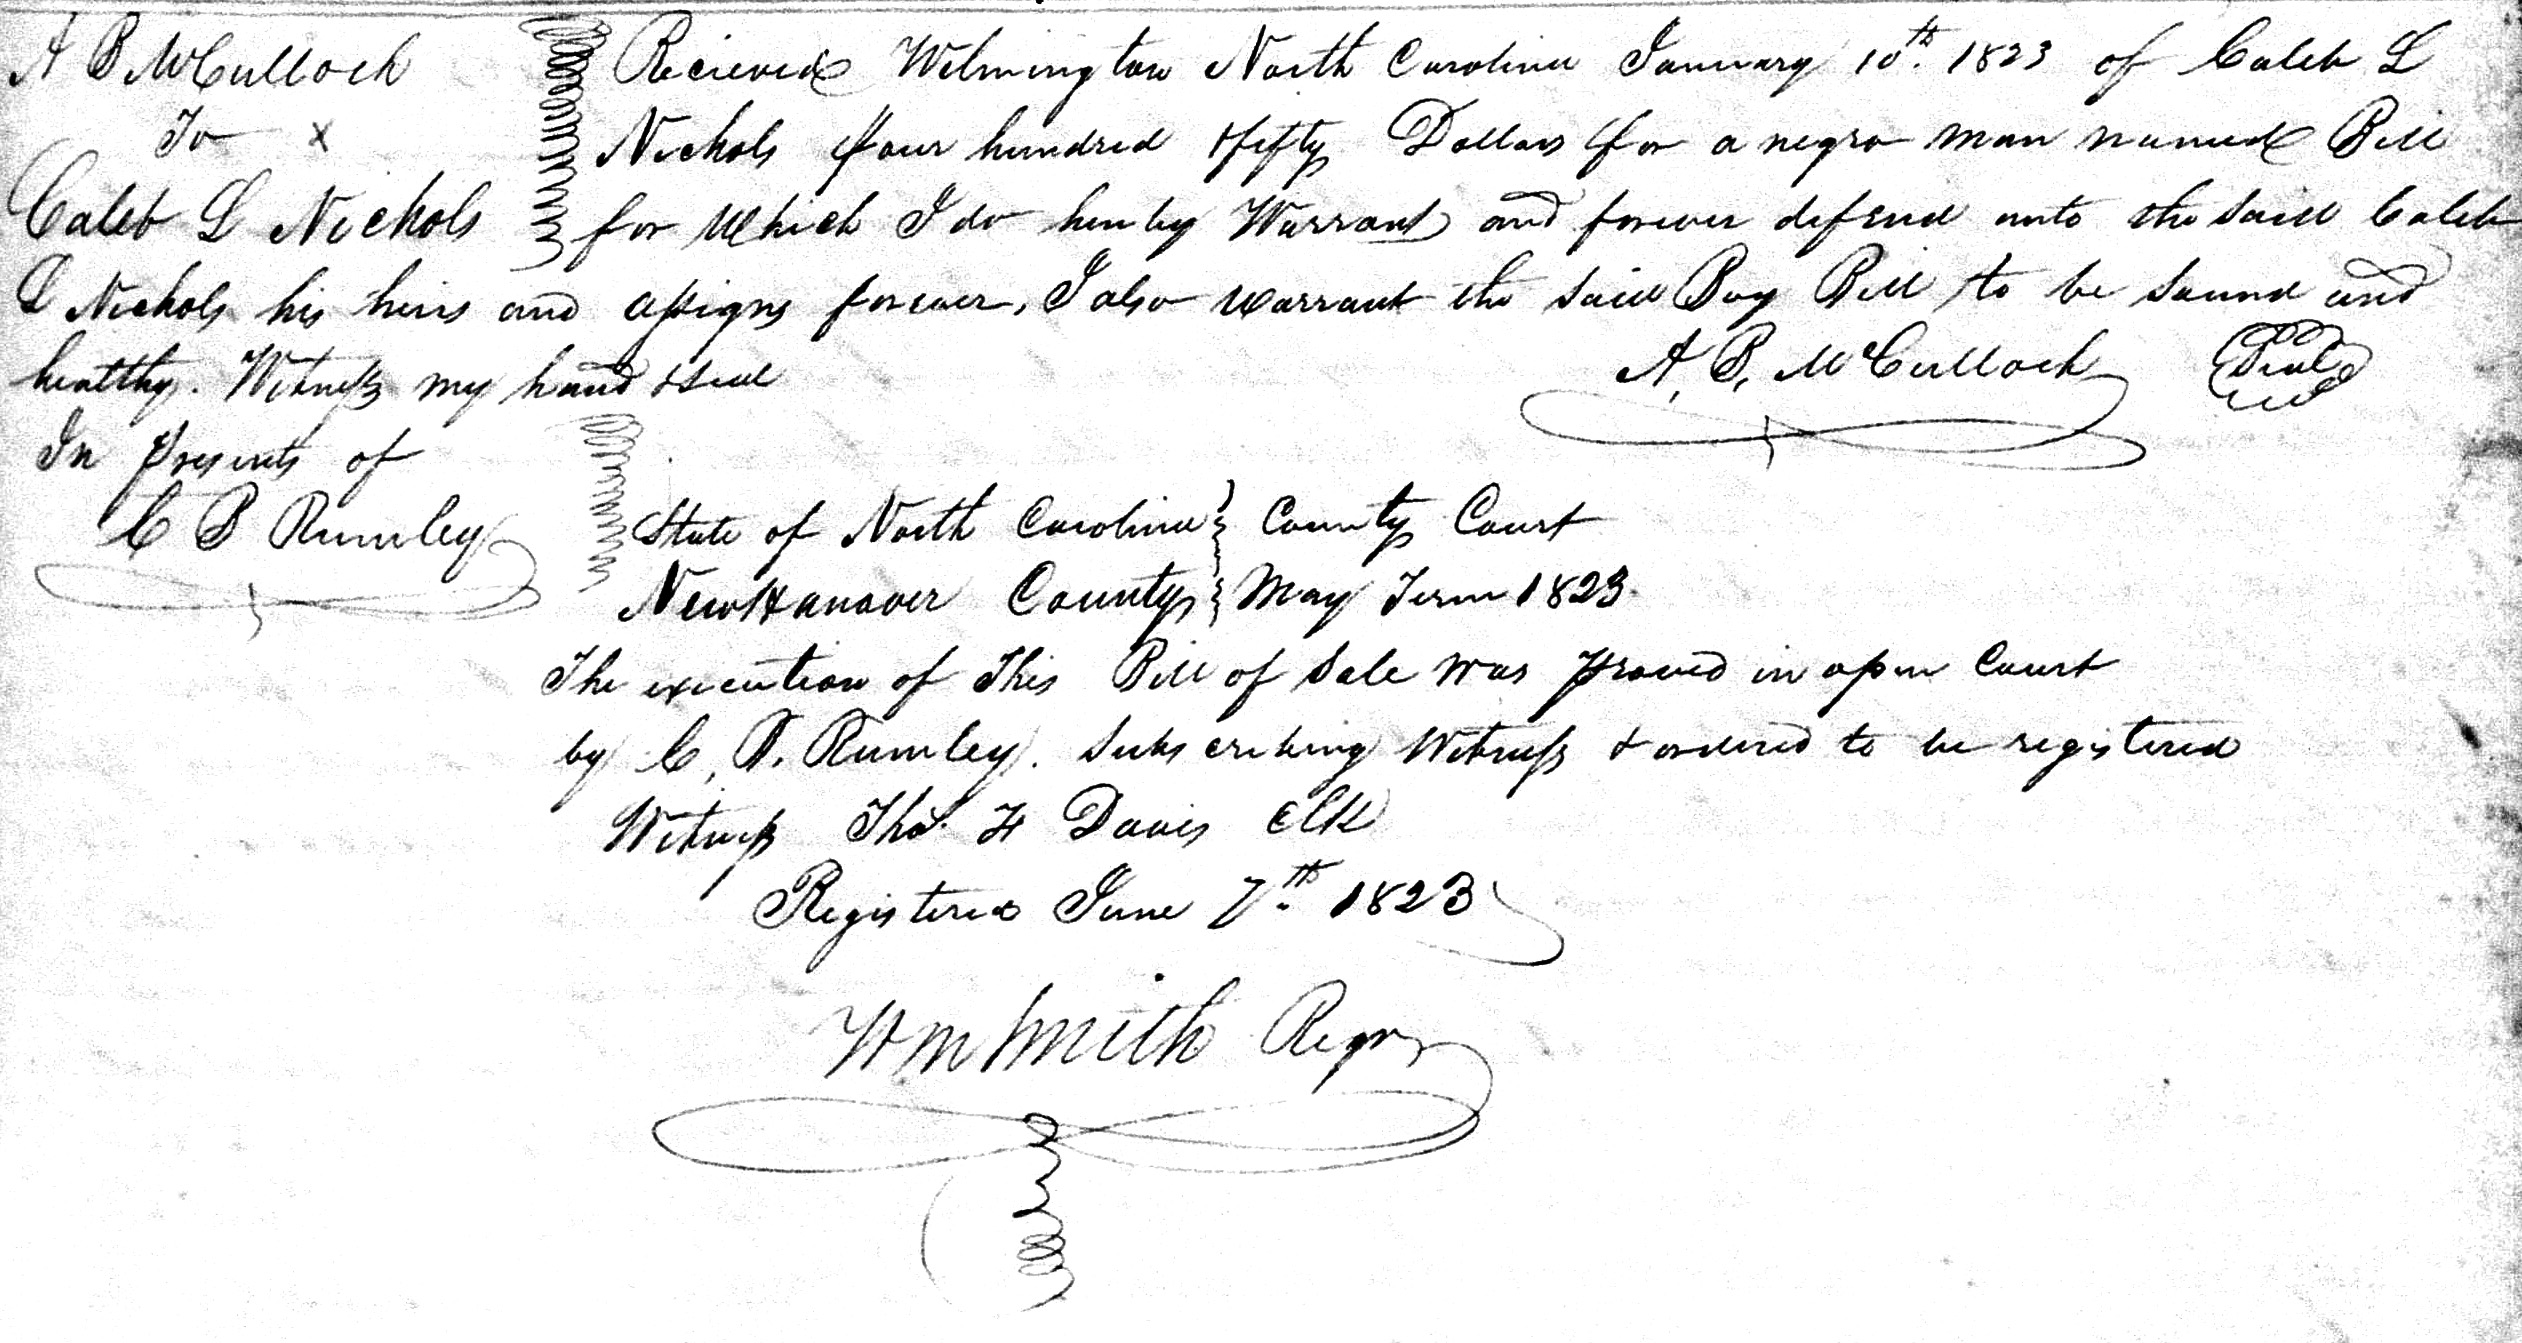 A B McCulloch
To x
Caleb L Nichols
Recieved Wilmington North Carolina January 10th. 1823 of Caleb L
Nichols four hundred & fifty Dollars for a negro man named Bill
for which I do hereby Warrant and forever defend unto the said Caleb
L Nichols his heirs and assigns forever, I also warrant the said Boy Bill to be sound and
healthy. Witness my hand & seal
A. B. McCulloch Seal
In presents of
C B Rumley
State of North Carolina } County Court
New Hanover County } May Term 1823.
The execution of This Bill of Sale was proved in open Court
by C, B. Rumley. Subscribing Witness & ordered to be registered
Witness Thos. H Davis Clk
Registered June 7th. 1823
Wm Smith Regr